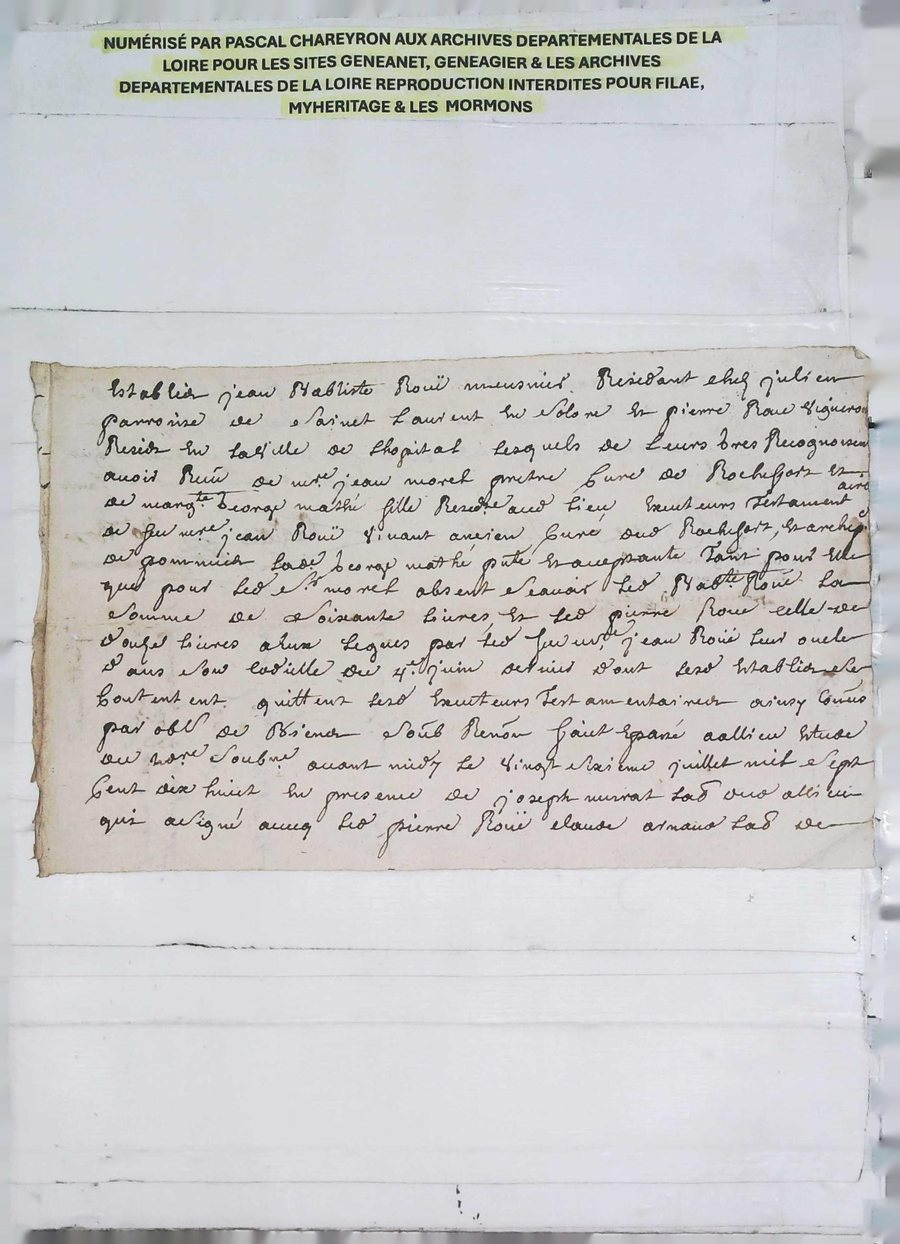 NUMÉRISÉ PAR PASCAL CHAREYRON AUX ARCHIVES DEPARTEMENTALES DE LA
LOIRE POUR LES SITES GENEANET, GENEAGIER & LES ARCHIVES
DEPARTEMENTALES DE LA LOIRE REPRODUCTION INTERDITES POUR FILAE,
MYHERITAGE & LES MORMONS
Establis jean Babtiste Roüë meusnier Residant chez julien
parroisse de Sainct Laurent En Solore Et pierre Roue Vigneron
Residt En la Ville de Lhopital Lesquels de Leurs gres Recognoissent
avoir Reçu de mre jean morel prestre Curé de Rocheffort Et
de margte George mathé fille Residte aud Lieu Executeurs Testament aires
de feu mre jean Roüë Vivant ancien Curé dud Rochefort, Et archip
de pommier lade George mathé pnte Et acceptante Tant pour Elle
que pour led Sr morel absent Scavoir led Babte Roüë La
Somme de Soixante Livres Et led pierre Roue celle de
douze Livres a Eux Legues par led feu mre jean Roüë leur oncle
dans Son Codicille du 4e juin dernier dont lesd Establis Se
Contentent quittent lesd Executeurs Testamentaires ainsy Convens
par obl de Biens Soub Renon faict Epassé aallieu Estude
du nore Soubne avant midy Le Vingt Sixieme juillet mil Sept
Cent dix huict En presence de joseph murat Lab dud allieu
qui a Signé avecq led pierre Roüë claude arnaud Lab de